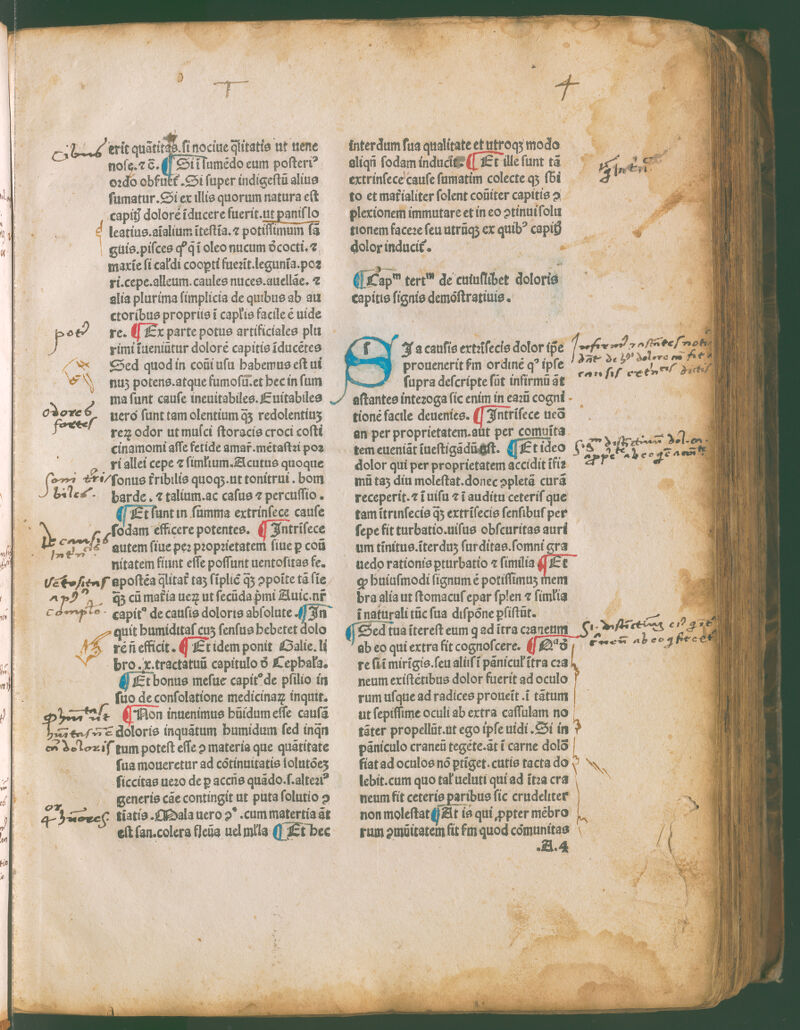 T
4
erit quãtitas.si nociue q̃litatis ut uene
nose.⁊ c̃. ¶ Si ĩ sumẽdo eum posteriꝰ
ordo obfuĩt. Si super indigestũ alius
sumatur. Si ex illis quorum natura est
capitꝭ dolorẽ ĩducere fuerit.ut panis lo
leatius.aĩalium ĩtestĩa.⁊ potissimum sã
guis.pisces qͦqꝫ ĩ oleo nucum ꝺcocti.⁊
maxie si calꝺi coopti fuerĩt.legumĩa.poꝛ
ri.cepe.alleum.caules nuces.auellãe.⁊
alia plurima simplicia de quibus ab au
ctoribus propriis ĩ capĩis facile ẽ uide
re. ¶ Ex parte potus artificiales plu
rimi ĩueniũtur dolorẽ capitis ĩducẽtes
Sed quod in coñi usu habemus est ui
nuꝫ potens.atque fumosũ.et hec in sum
ma sunt cause ineuitabiles.Euitabiles
uero sunt tam olentium qꝫ redolentiuꝫ
reꝝ odor ut musci storacis croci costi
cinamomi asse fetide amar̃.mẽtastri poꝛ
ri allei cepe ⁊ simĩlium.Acutus quoque
sonus t̃ribilis quoqꝫ.ut tonitrui.bom
barde.⁊ talium.ac casus ⁊ percussio.
¶ Et sunt in summa extrinsece cause
sodam efficere potentes. ¶ Intrĩsece
autem siue per proprietatem siue p coũ
nitatem fiunt esse possunt uentositas fe.
apostẽa q̃litat̃ taꝫ sĩpliẽ qꝫ ꝯpoĩte tã sie
qꝫ cũ mat̃ia ueꝝ ut secũda p̃mi Auic.nr̃
capitͦ de causis doloris absolute. ¶ In
quit humiditas cuꝫ sensus hebetet dolo
rẽ ñ efficit. ¶ Et idem ponit Galie.li
bro.x.tractatuũ capitulo ꝺ Cephaĩa.
¶ Et bonus mesue capitͦ de psilio in
suo de consolatione medicinaꝝ inquit.
¶ Non inuenimus hũidum esse causã
doloris inquãtum humidum sed inqñ
tum potest esse ꝯ materia que quãtitate
sua moueretur ad cõtinuitatis solutõeꝫ
siccitas uero de p accñs quãdo.s.alteriꝰ
generis cãe contingit ut puta solutio ꝯ
tiatis. Mala uero ꝯꝰ.cum matertia ãt
est san.colera fleũa uel mĩla ¶ Et hec
interdum sua qualitate et utroqꝫ modo
aliqñ sodam inducĩt ¶ Et ille sunt tã
extrinsece cause sumatim colecte qꝫ sbi
to et mat̃ialiter solent coñiter capitis ꝯ
plexionem immutare et in eo ꝯtinui solu
tionem facere seu utrũqꝫ ex quibꝰ capitꝭ
dolor inducit̃.
¶ Capᵐ tertᵐ de cuiuslibet doloris
capitis signis demõstratiuis.
SI a causis extrĩsecis dolor ip̃e
prouenerit fm ordinẽ qͦ ipse
supra descripte sũt infirmũ ãt
astantes interoga sic enim in eaꝝ cogni
tionẽ facile deuenies. ¶ Intrĩsece ueõ
an per proprietatem.aut per comuĩta
tem eueniãt ĩuestigãdũ est. ¶ Et ideo
dolor qui per proprietatem accidit ĩfir
mũ taꝫ diu molestat.donec ꝯpletã curã
receperit.⁊ ĩ uisu ⁊ ĩ auditu ceterisque
tam ĩtrinsecis qꝫ extrĩsecis sensibus per
sepe fit turbatio.uisus obscuritas auri
um tĩnitus.ĩterduꝫ surditas.somni gra
uedo rationis pturbatio ⁊ similia ¶ Et
ꝙ huiusmodi signum ẽ potissimuꝫ mem
bra alia ut stomacus epar splen ⁊ simĩia
ĩ naturali tũc sua dispõne psistũt.
¶ Sed tua ĩterest eum q ad ĩtra craneum
ab eo qui extra fit cognoscere. ¶ Nã ꝺ
re sĩ ĩ mirĩgis.seu aliis ĩ pãniculĩ ĩtra cra
neum existẽtibus dolor fuerit ad oculo
rum usque ad radices proueĩt.ĩ tãtum
ut sepissime oculi ab extra cassulam no
tãter propellũt.ut ego ipse uidi.Si in
pãniculo craneũ tegẽte.ãt ĩ carne dolõ
fiat ad oculos nõ ptĩget.cutis tacta do
lebit.cum quo taĩ ueluti qui ad ĩtra cra
neum fit ceteris paribus sic crudeliter
non molestat ¶ At is qui ꝓpter mẽbro
rum ꝯmũitatem fit fm quod cõmunitas
.A.4
Cibus
potꝰ
odores
fortes
soni t̃ri
biles.